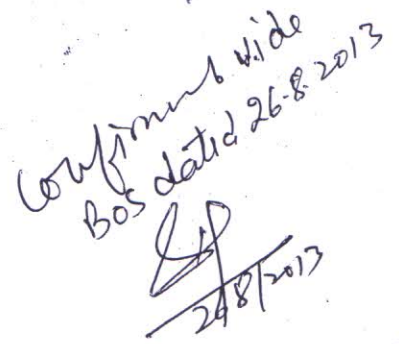 Confirmed vide
BOS dated 26.8.2013
26/8/2013